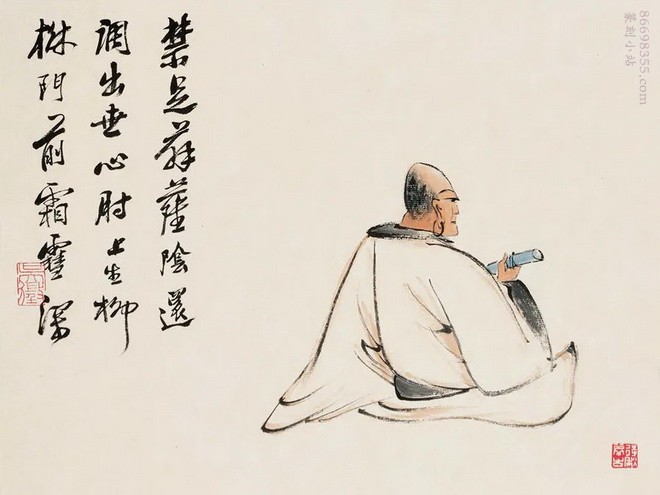 禁足薜蘿陰還
調出世心肘上生柳
株門前霜雪深
86698355.com
篆刻小站